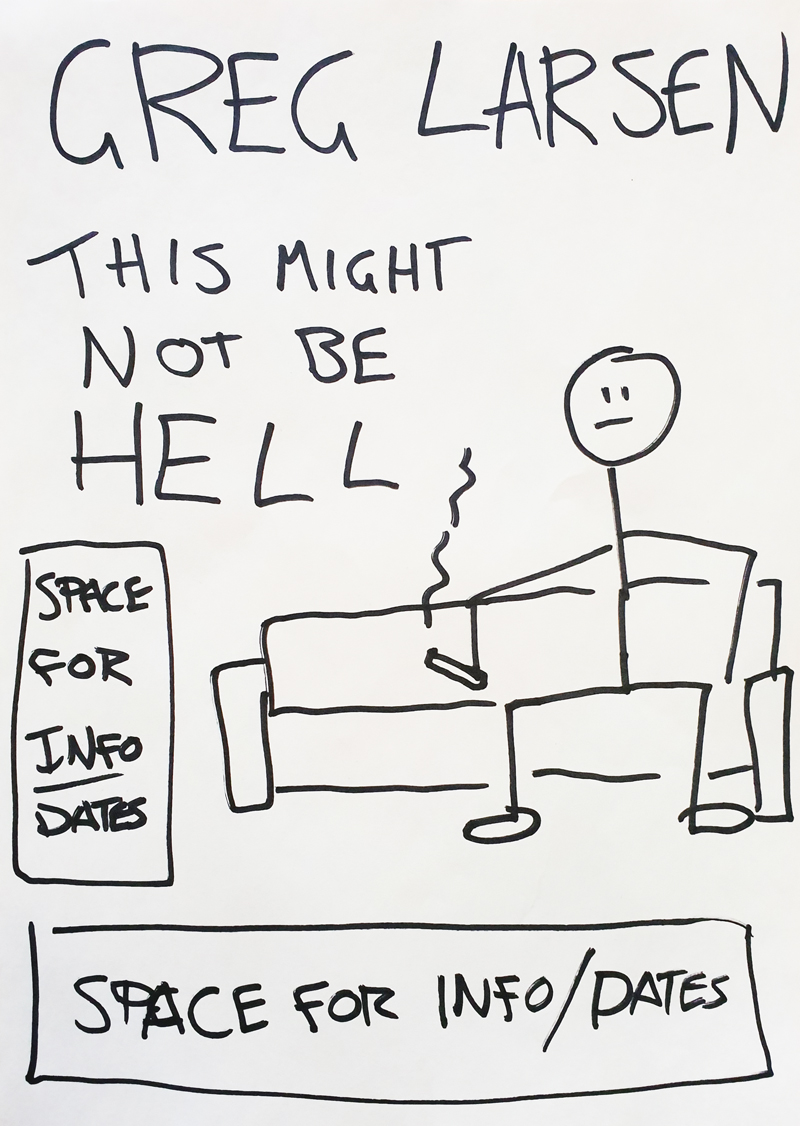 GREG LARSEN
THIS MIGHT
NOT BE
HELL
SPACE
FOR
INFO
DATES
SPACE FOR INFO/DATES